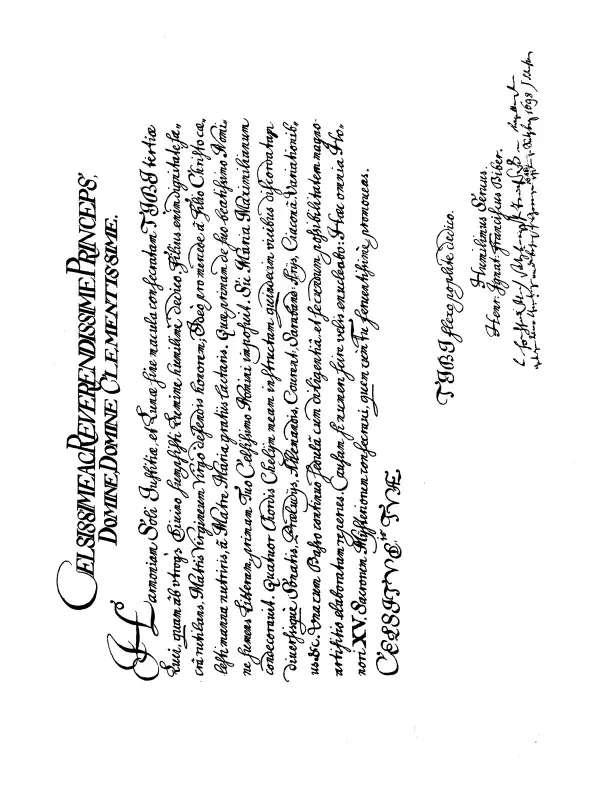 CELSISSIME AC REVERENDISSIME PRINCEPS,
DOMINE, DOMINE CLEMENTISSIME.
Harmoniam Soli Justitiæ, et Lunæ sine macula consecratam TIBI tertiæ
Luci, quam ab vtroq3 Divino sumpsisti Lumine humilimè dedico. Filius enim dignitate sa,
crâ rutilans, Matris Virgineum Virgo defendis honorem; Ideò pro mercede à Filio Christo cæ,
lesti manna nutriris, à Matre Maria gratijs lactaris. Quæ primam de suo beatissimo Nomi,
ne sumens Litteram, primam Tuo Celsissimo Nomini imposuit. Sic Maria Maximilianum
condecorauit. Quatuor Chordis Chelym meam instructam quindecim vicibus discordatam
diuersisque Sonatis, Præludijs, Allemandis, Courent: Saraband: Arijs, Ciacona, Variationib,
us &c. Vna cum Basso continuo sedulâ cum diligentiâ, et secundum possibilitatem magno
artifitio elaboratam reperies. Causam si numeri scire velis enucleabo: Hæc omnia Ho,
nori XV. Sacrorum Mysteriorum consecraui, quem cum Tu feruentissimè promoueas.
CELSITVD.is TVÆ
TIBI flexo poplite dedico.
Humilimus Seruus.
Henr: Ignat: Franciscus Biber.
1698